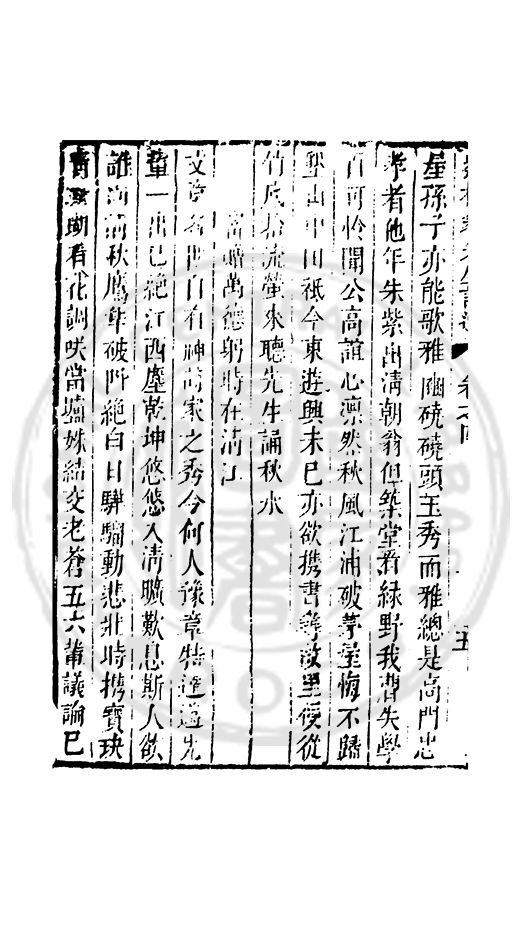 星孫子亦能歌雅幽磽磽頭玉秀而雅總是高門忠
孝者他年朱紫出清朝翁但築堂看綠野我潛失學
百可怜聞公高誼心凛然秋風江浦破茅屋悔不歸
山中田祇今東遊興未已亦欲携書尋故里便從
竹底拾流螢來聽先生誦秋水
寄懷萬德躬時在清江
文章名世自有神前家之秀今何人豫章特達逢先
輩一出已絕江西塵乾坤悠悠入清曠歎息斯人欲
誰尚清秋鷹隼破門絕白日騏驑動悲壯時携寶玦
看花調笑當壚姝結交老蒼五六輩議論已